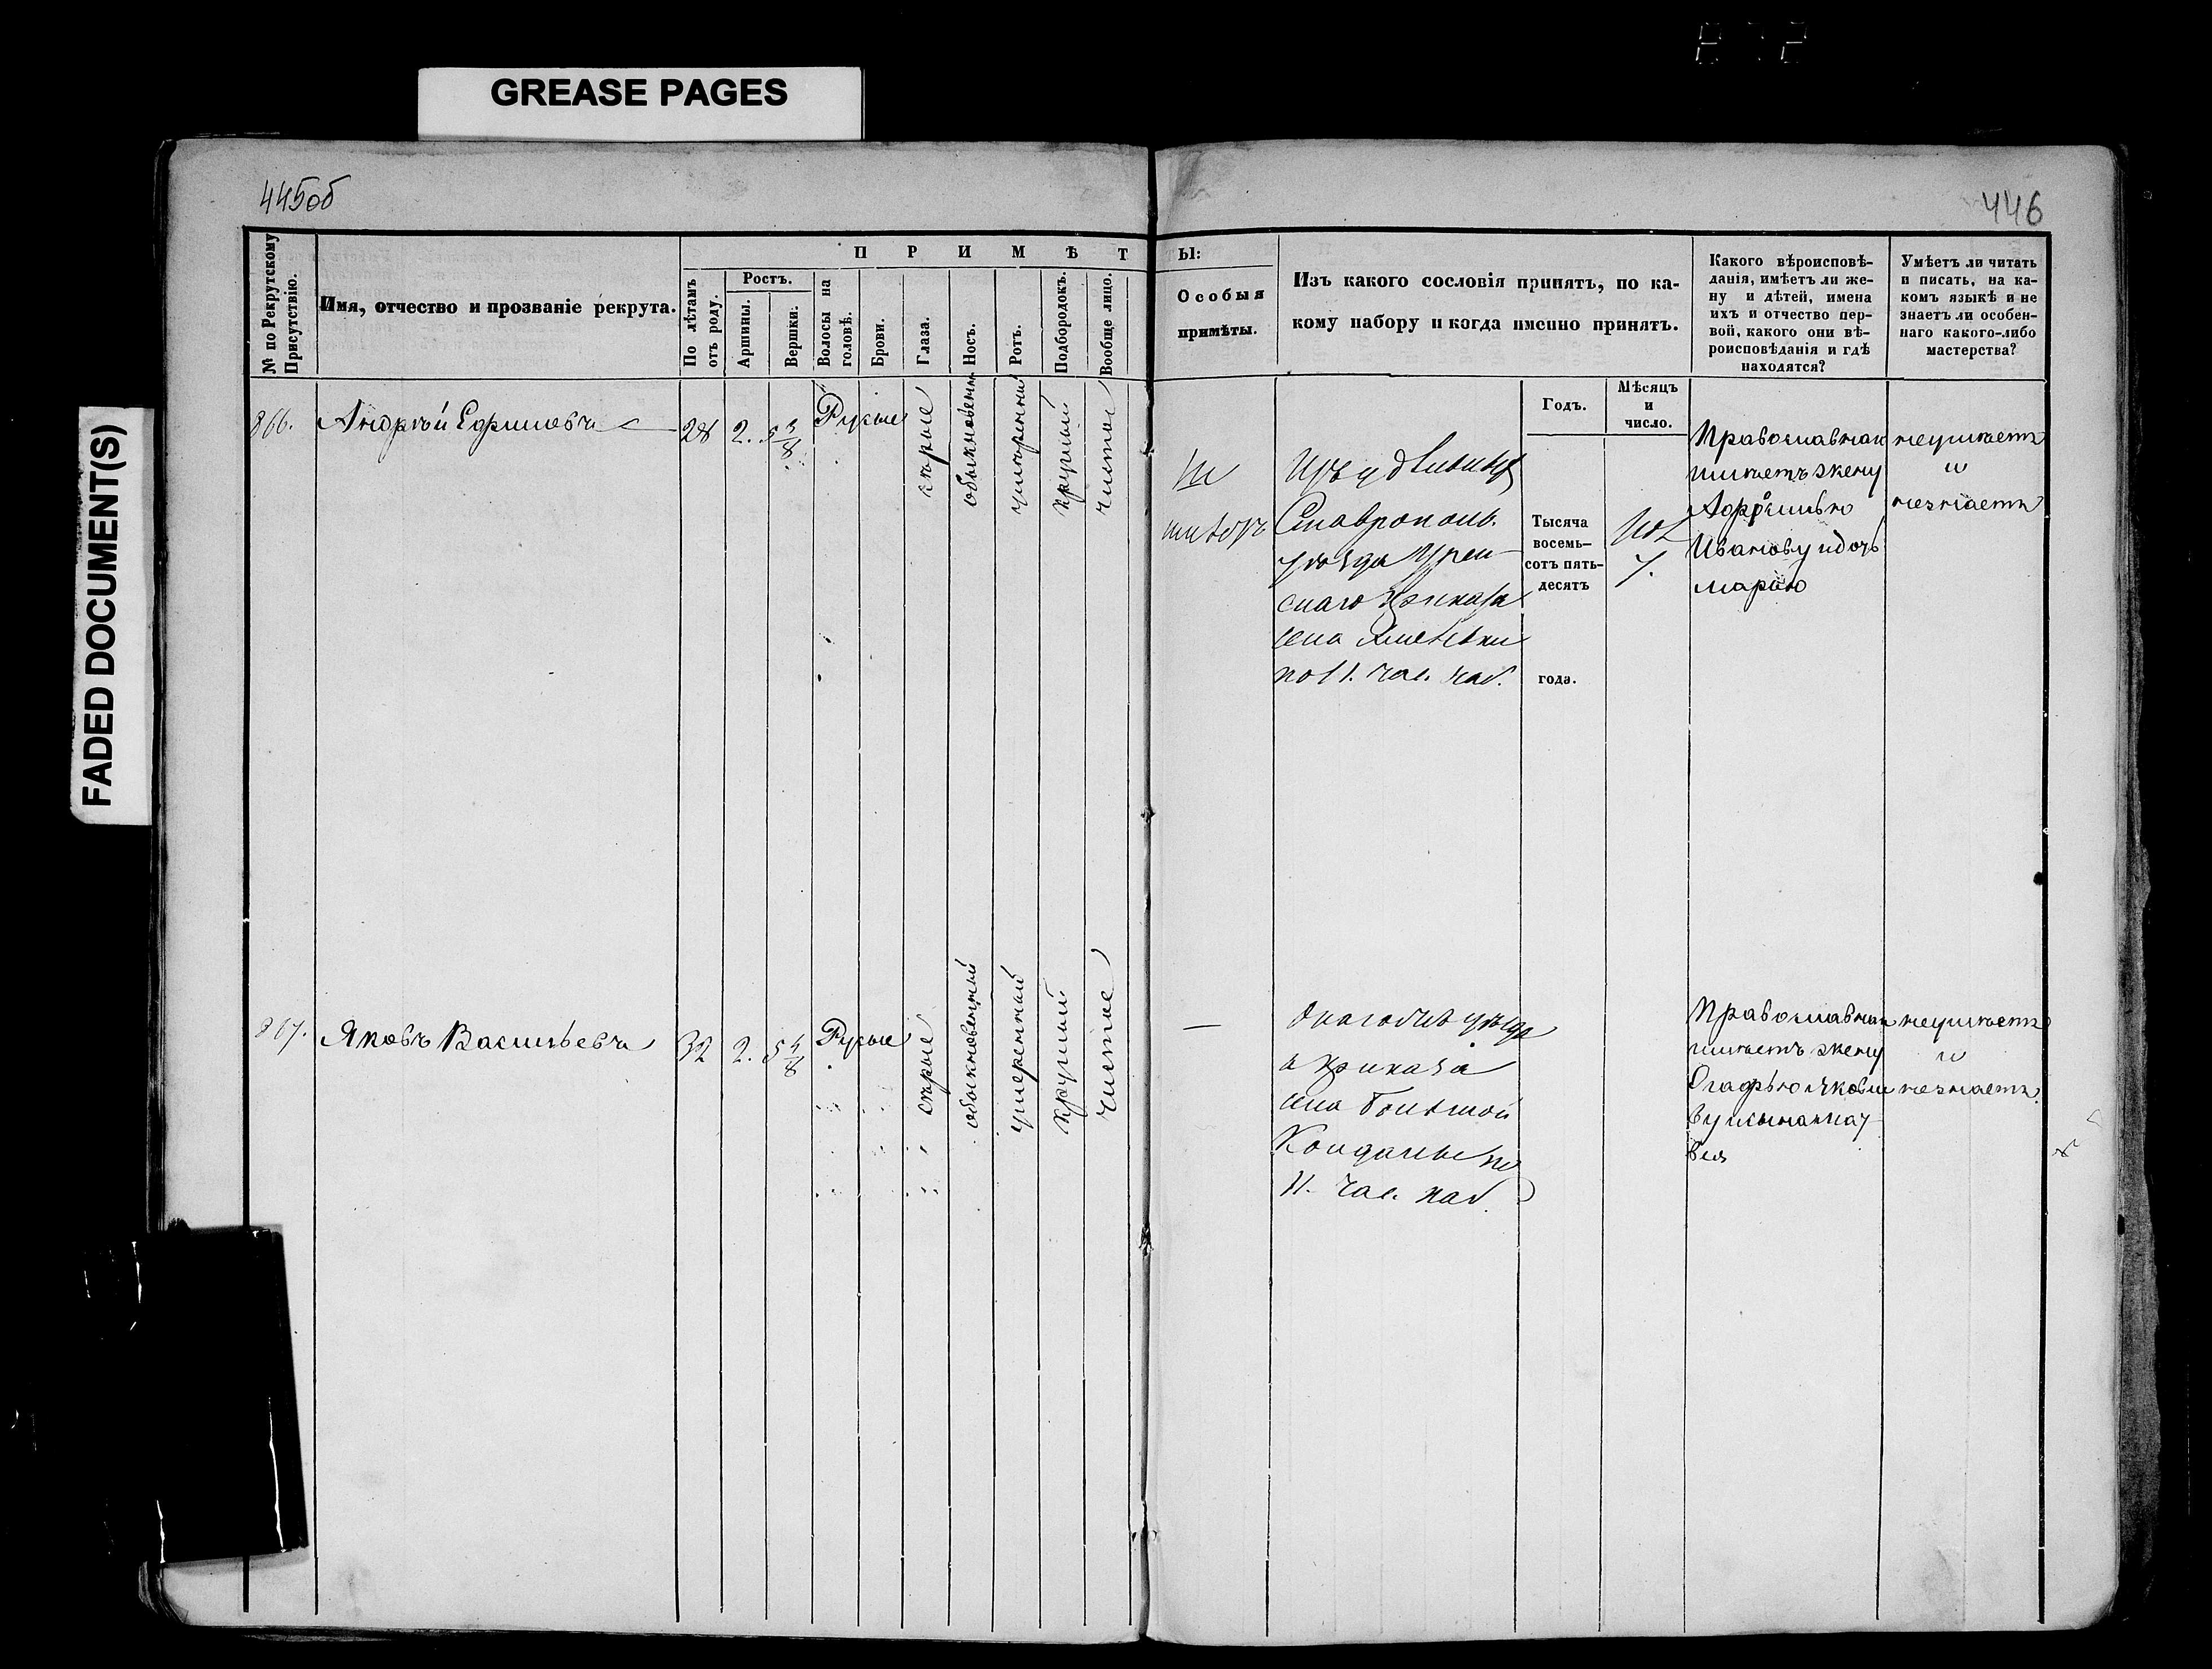 GREASE PAGES
FADED DOCUMENT(S)
445об
446
№ по Рекрутскому Присутствію.
Имя, отчество и прозваніе рекрута.
П Р И М Ѣ Т Ы:
По лѣтамъ отъ роду.
Ростъ.
Аршины.
Вершки.
Волосы на головѣ.
Брови.
Глаза.
Носъ.
Ротъ.
Подбородокъ.
Вообще лицо.
Особыя
примѣты.
Изъ какого сословія принятъ, по ка-
кому набору и когда именно принятъ.
Какого вѣроисповѣ-
данія, имѣетъ ли же-
ну и дѣтей, имена
ихъ и отчество пер-
вой, какого они вѣ-
роисповѣданія и гдѣ
находятся?
Умѣетъ ли читать
и писать, на ка-
комъ языкѣ и не
знаетъ ли особен-
наго какого-либо
мастерства?
Годъ.
Мѣсяцъ
и
число.
866. Андрѣй Ефимовъ 28 2. 5 3/8 Русые
сѣрые
обыкновенный
умѣренный
круглый
чистое
Изъ удѣльныхъ
Ставрополь.
уѣзда
скаго Приказа
села
по 11. час. наб.
Тысяча
восемь-
сотъ пять-
десятъ
года.
7.
Православнаго
имѣетъ жену
Афимью
Иванову и дочь
марью
неумѣетъ
и
незнаетъ
867. Яковъ Васильевъ 32 2. 5 4/8 Русые
сѣрые
обыкновенный
умеренный
круглый
чистое
—
Онагожъ уѣзда
и приказа
села Большой
Кондалы по
11. час. наб.
Православнаго
имѣетъ жену
Огафью Яковле
ву
неумѣетъ
и
незнаетъ.